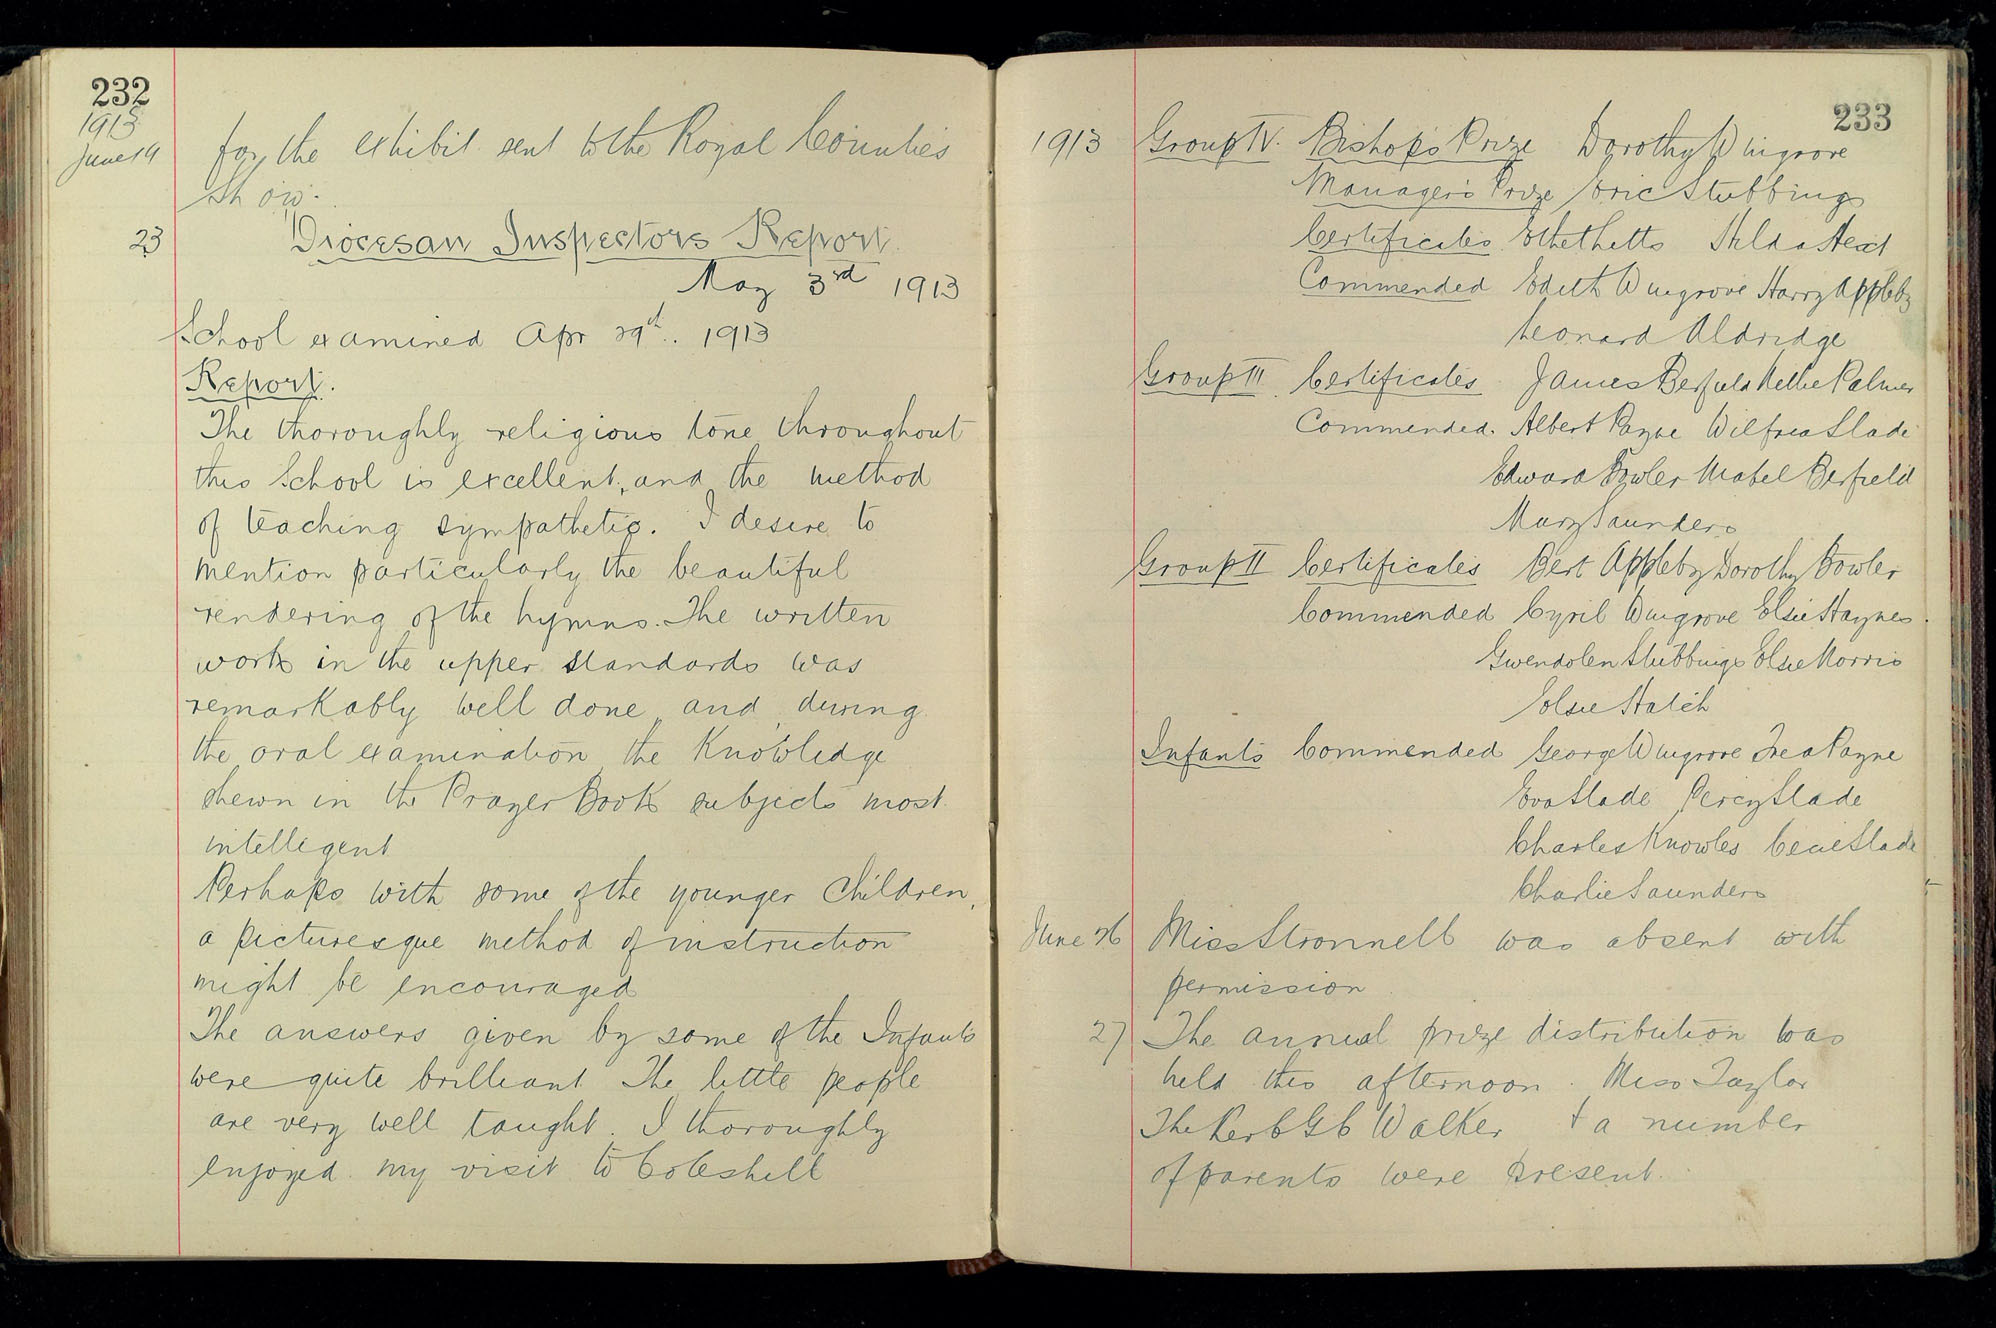 232
1913
June 19
for the exhibit sent to the Royal Counties
Show.
23
Diocesan Inspectors Report.
May 3rd 1913
School examined Apr 29th. 1913
Report.
The thoroughly religious tone throughout
this School is excellent, and the method
of teaching sympathetic. I desire to
mention particularly the beautiful
rendering of the hymns. The written
work in the upper standards was
remarkably well done and during
the oral examination the Knowledge
shewn in the Prayer Book subjects most
intelligent
Perhaps with some of the younger Children,
a picturesque method of instruction
might be encouraged
The answers given by some of the Infants
were quite brilliant The little people
are very well taught. I thoroughly
enjoyed my visit to Coleshill
233
1913 Group IV. Bishop's Prize Dorothy Wingrove
Manager's Prize Eric Stubbings
Certificates Hilda
Commended Edith Wingrove Harry Appleby
Leonard Aldridge
Group III Certificates James Berfield Nellie Palmer
Commended. Albert Payne Wilfred Slade
Edward Bowler Mabel Berfield
Mary Saunders
Group II Certificates Bert Appleby Dorothy Bowler
Commended Cyril Wingrove Elsie Haynes.
Gwendolen Stubbings Elsie Morris
Elsie Hatch
Infants Commended George Wingrove Payne
Eva Slade Percy Slade
Charles Knowles Slade
Charlie Saunders
June 26 Miss Stronnell was absent with
permission
27 The annual prize distribution was
held this afternoon. Miss Taylor
The Walker + a number
of parents were present.